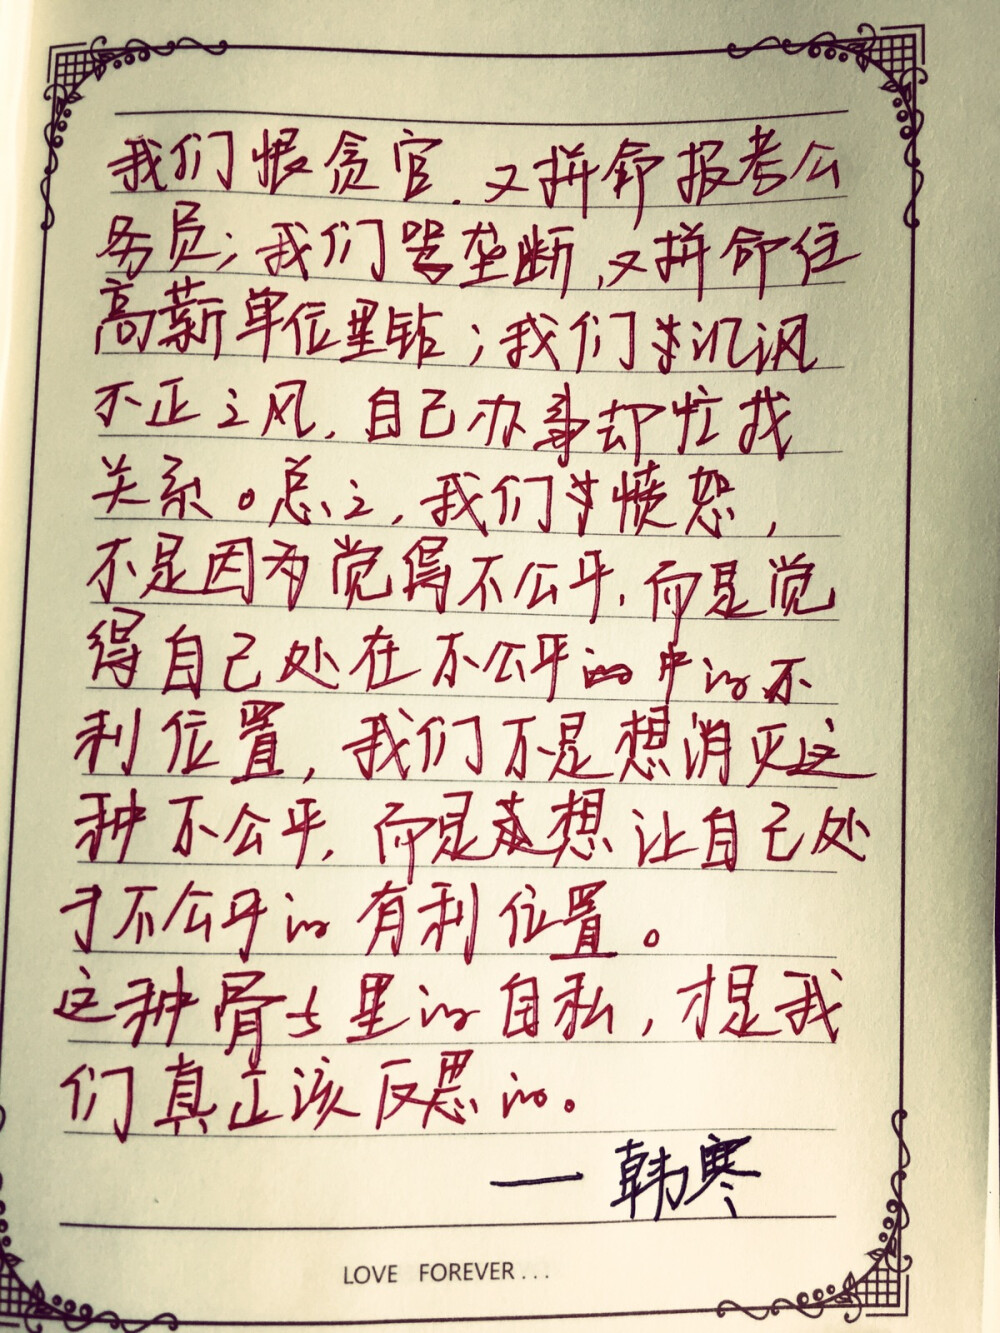 我们恨贪官，又拼命报考公
务员；我们骂垄断，又拼命往
高薪单位里钻；我们讥讽
不正之风，自己办事却忙找
关系。总之，我们愤怒，
不是因为觉得不公平，而是觉
得自己处在不公平中的不
利位置，我们不是想消灭这
种不公平，而是想让自己处
于不公平的有利位置。
这种骨头里的自私，才是我
们真正该反思的。
一韩寒
LOVE FOREVER...